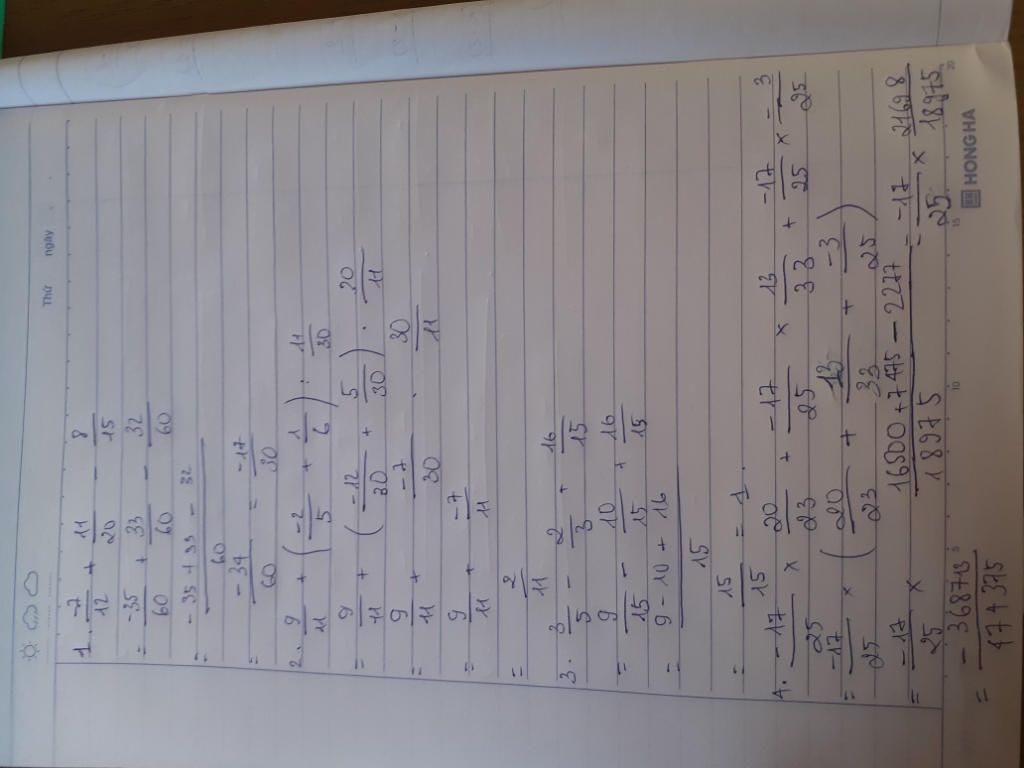 Thứ ngày
1. -7/12 + 11/20 - 8/15
= -35/60 + 33/60 - 32/60
= -35 + 33 - 32 / 60
= -34/60 = -17/30
2. 9/11 + (-2/5 + 1/6) : 11/30
= 9/11 + (-12/30 + 5/30) . 20/11
= 9/11 + -7/30 . 30/11
= 9/11 + -7/11
= 2/11
3. 3/5 - 2/3 + 16/15
= 9/15 - 10/15 + 16/15
= 9 - 10 + 16 / 15
= 15/15 = 1
4. -17/25 x 20/23 + -17/25 x 13/33 + -17/25 x -3/25
= -17/25 x (20/23 + 13/33 + -3/25)
= -17/25 x 16500 + 7475 - 2277 / 18975 = -17/25 x 21698/18975
= -368713 / 17+375
HONG HA
5 10 15 20